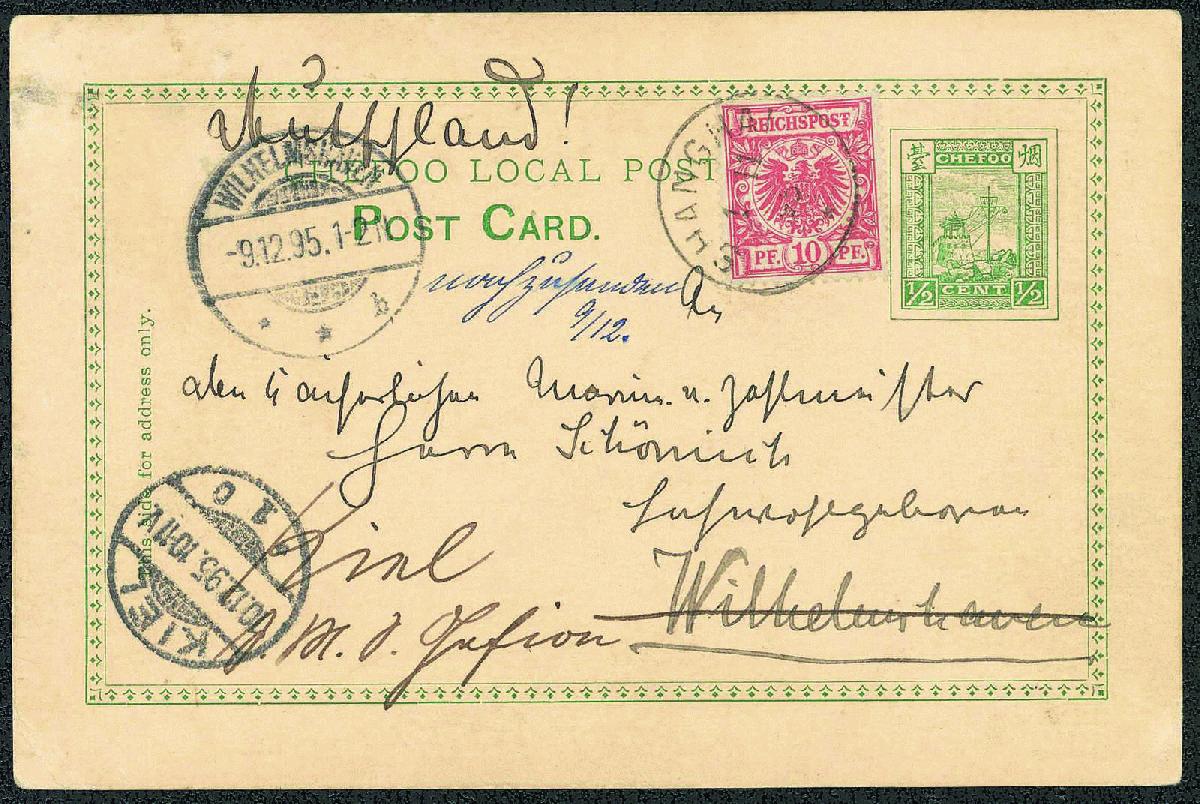 Deutschland!
CHEFOO LOCAL POST
POST CARD.
REICHSPOST
PF. 10 PF.
SHANGHAI
煙臺
CHEFOO
½ CENT ½
WILHELMSHAVEN
-9.12.95.1-2N.
* * b
nachzusenden
9/12.
An
den Kaiserlichen Marine u. Zahlmeister
Herrn Schönich
Hochwohlgeboren
Wilhelmshaven
Kiel
S. M. S. Gefion
KIEL
10.12.95.10-11V.
This side for address only.